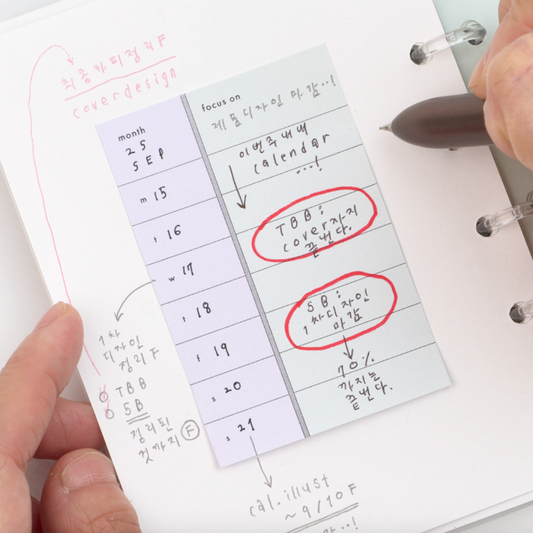 최종카피정리F
coverdesign
month
25
SEP
focus on
제품디자인 마감..!
이번주내내
calendar
...!
m 15
t 16
w 17
t 18
f 19
s 20
s 21
TBB:
cover까지
끝낸다.
SB:
1차디자인
마감
70%
까지는
끝낸다.
1차
디자인
정리F
TBB
SB
정리된
것까지 F
cal.illust
~9/10F
..!